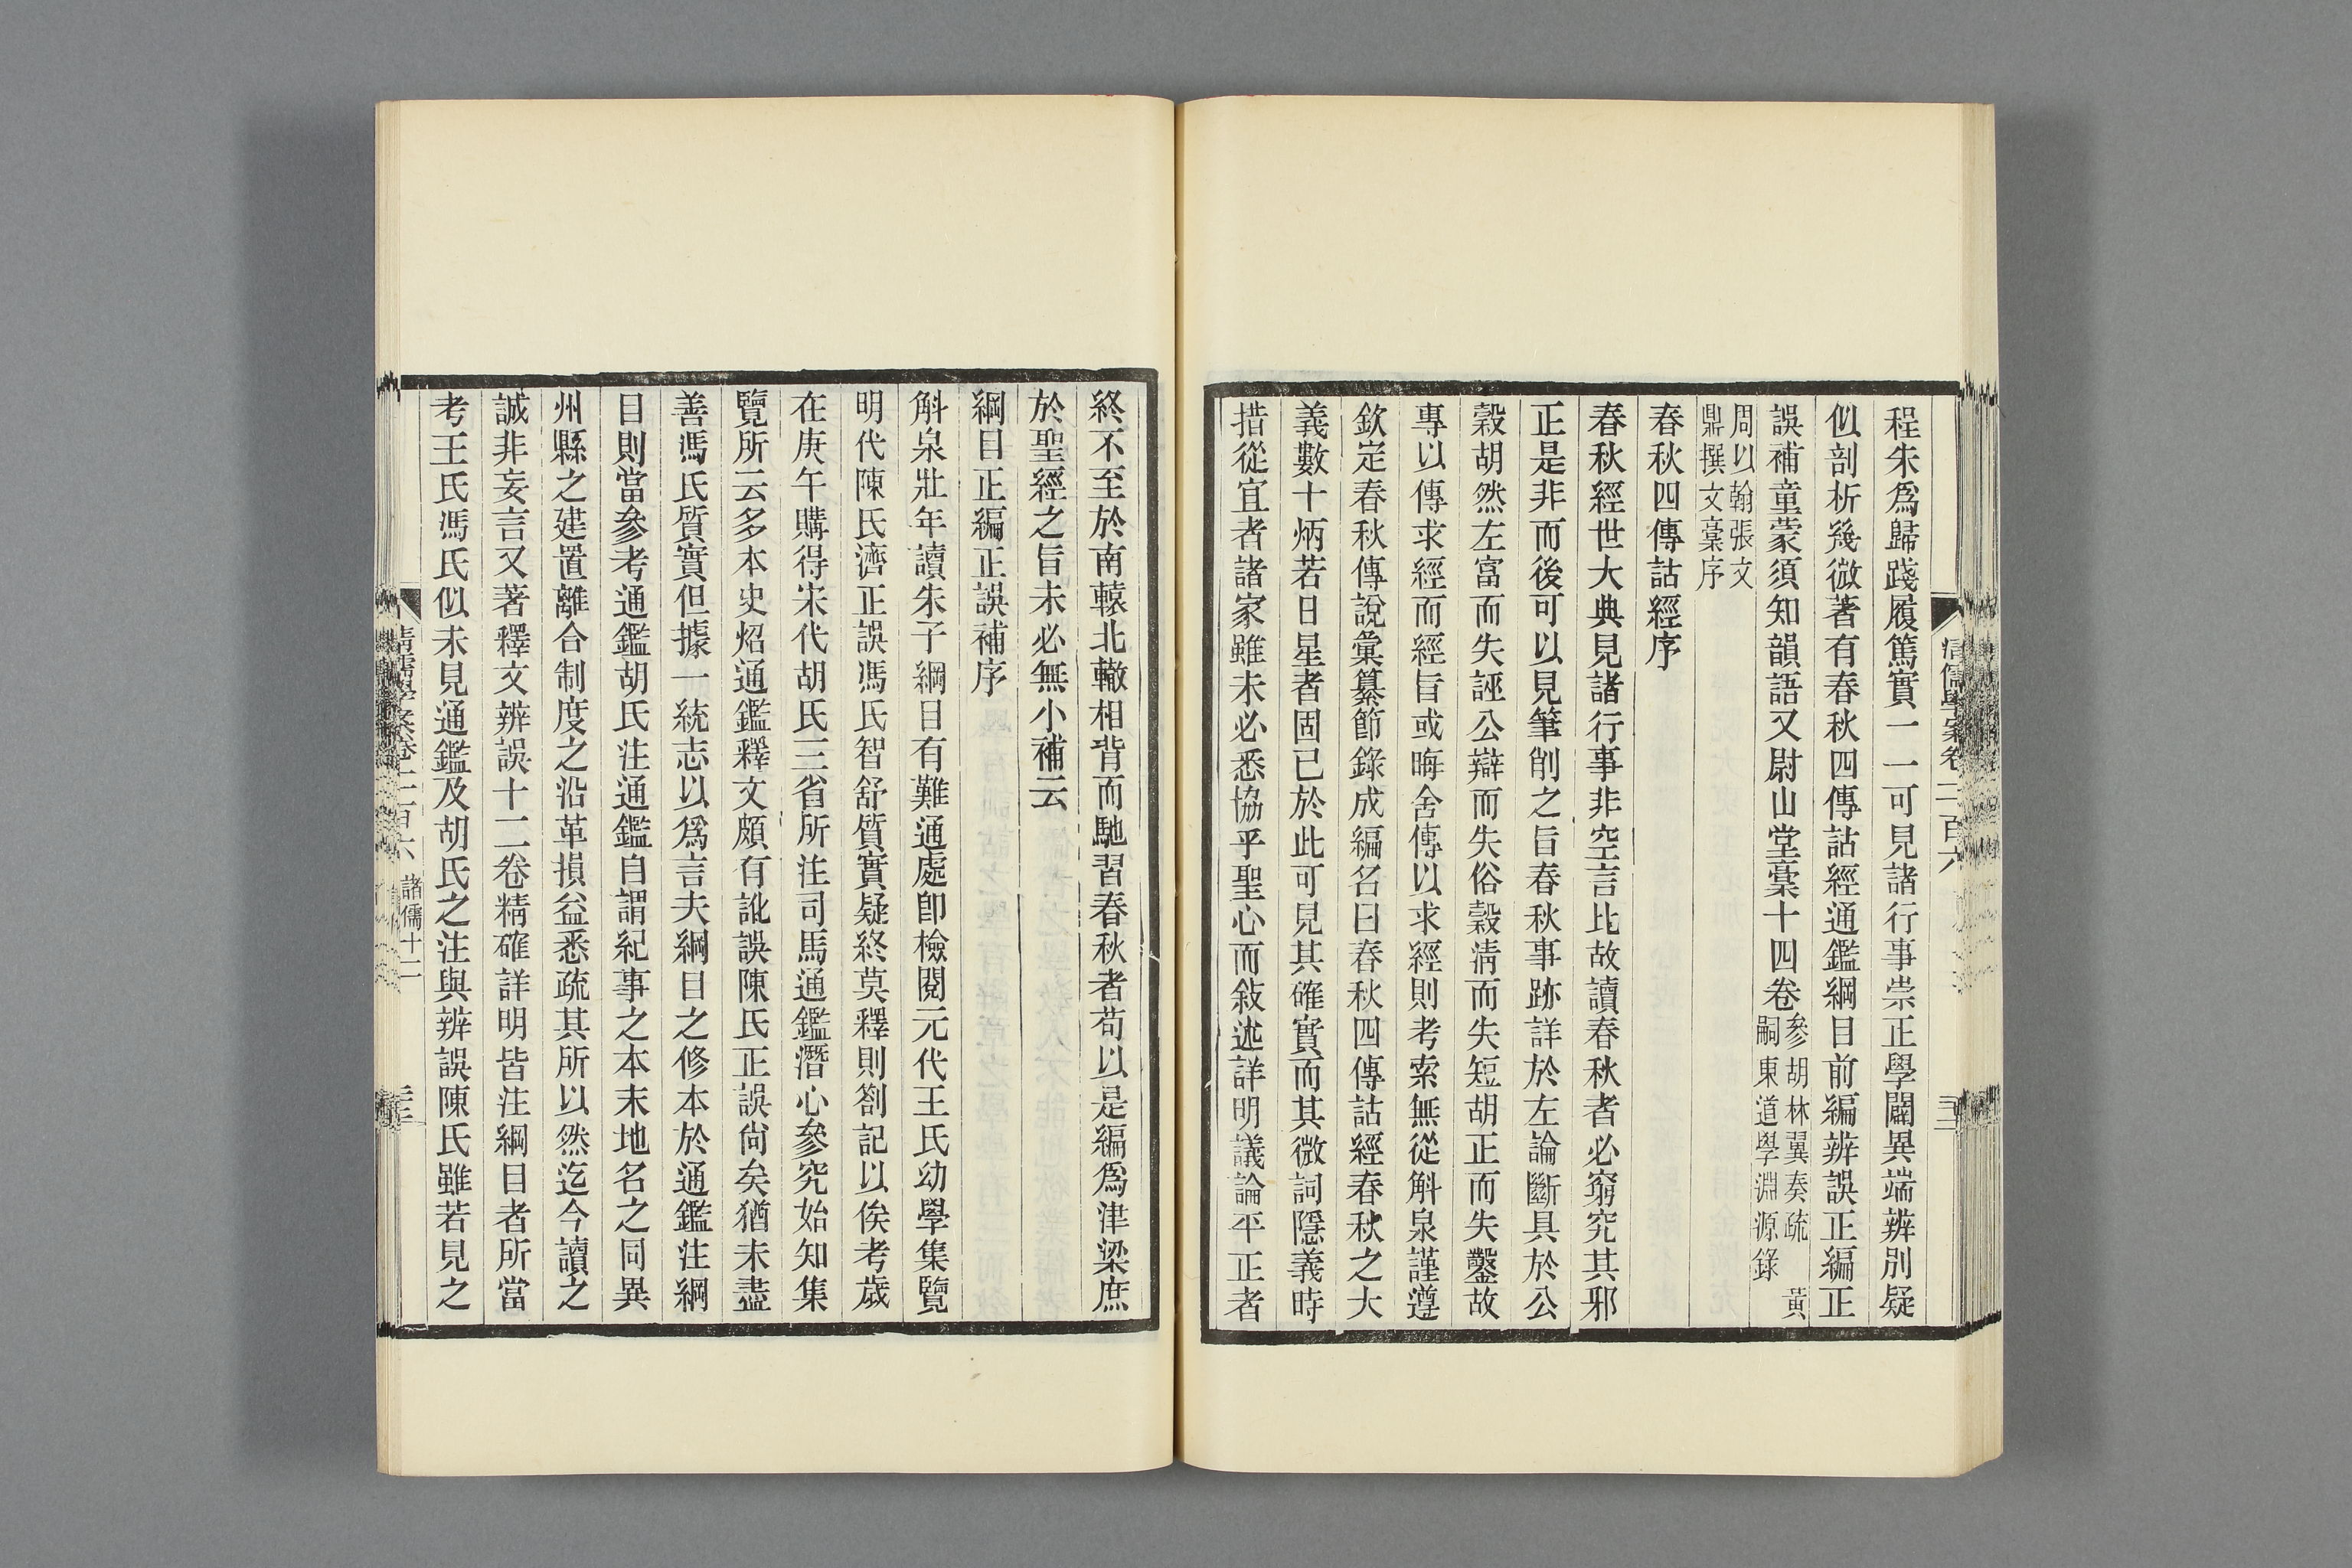 程朱爲歸踐履篤實一一可見諸行事崇正學闢異端辨別疑
似剖析幾微著有春秋四傳詁經通鑑綱目前編辨誤正編正
誤補童蒙須知韻語又尉山堂稾十四卷參胡林翼奏疏 黃
嗣東道學淵源錄
周以翰張文
鼎撰文稾序
春秋四傳詁經序
春秋經世大典見諸行事非空言比故讀春秋者必窮究其邪
正是非而後可以見筆削之旨春秋事跡詳於左論斷具於公
穀胡然左富而失誣公辯而失俗穀淸而失短胡正而失鑿故
專以傳求經而經旨或晦舍傳以求經則考索無從斛泉謹遵
欽定春秋傳說彙纂節錄成編名曰春秋四傳詁經春秋之大
義數十炳若日星者固已於此可見其確實而其微詞隱義時
措從宜者諸家雖未必悉協乎聖心而敍述詳明議論平正者
清儒學案卷二百六
三
終不至於南轅北轍相背而馳習春秋者苟以是編爲津梁庶
於聖經之旨未必無小補云
綱目正編正誤補序
斛泉壯年讀朱子綱目有難通處卽檢閱元代王氏幼學集覽
明代陳氏濟正誤馮氏智舒質實疑終莫釋則劄記以俟考歲
在庚午購得宋代胡氏三省所注司馬通鑑潛心參究始知集
覽所云多本史炤通鑑釋文頗有訛誤陳氏正誤尙矣猶未盡
善馮氏質實但據一統志以爲言夫綱目之修本於通鑑注綱
目則當參考通鑑胡氏注通鑑自謂紀事之本末地名之同異
州縣之建置離合制度之沿革損益悉疏其所以然迄今讀之
誠非妄言又著釋文辨誤十二卷精確詳明皆注綱目者所當
考王氏馮氏似未見通鑑及胡氏之注與辨誤陳氏雖若見之
清儒學案卷二百六 諸儒十二